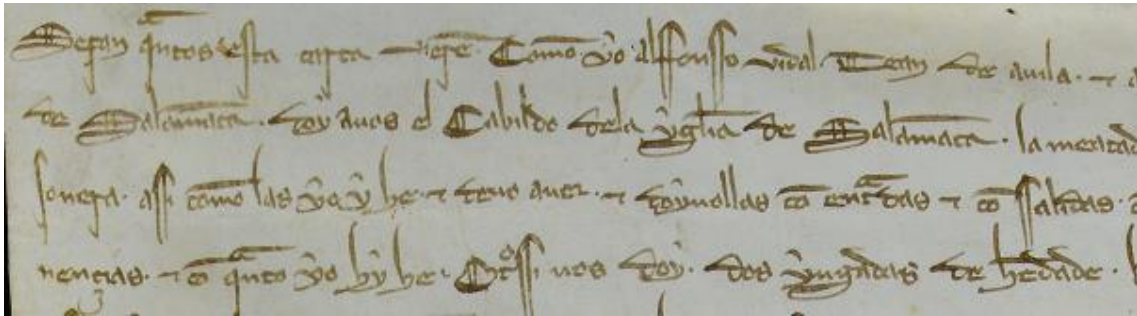 Sepan q̄ntos esta carta vierē Como yo alffonsso vidal Dean de auila · ⁊
de Salamāca · doy auos el Cabildo dela yglīa de Salamāca · la meatad
assi como las yo y he · ⁊ deuo auer · ⁊ doyuollas cō ent̄das ⁊ cō ssalidas ·
nencias · ⁊ cō q̄nto yo hy he · Otᵒssi uos doy · dos yugadas de h̄edade ·